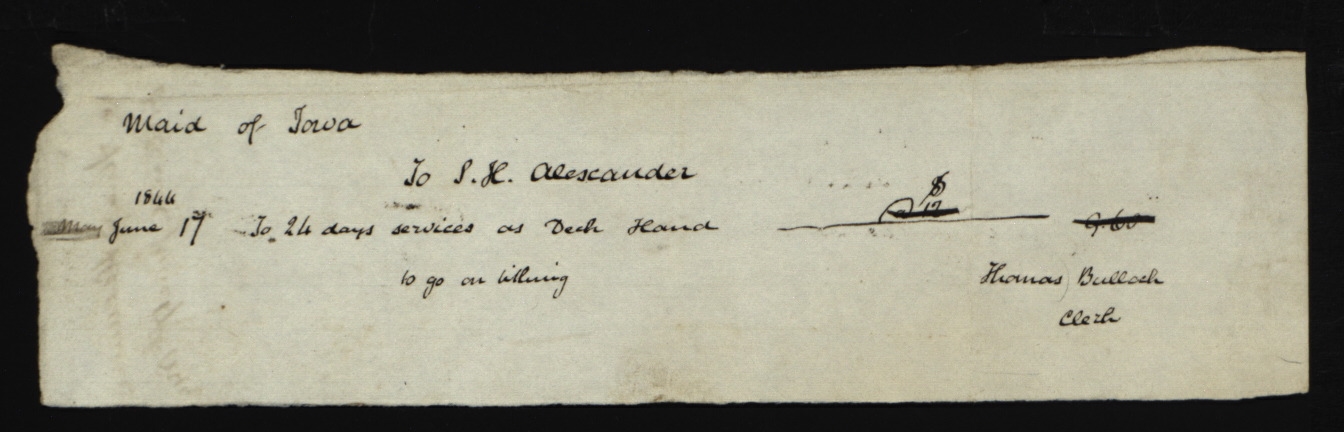 Maid of Iowa
To S. H. Alexander
1844
May June 17 To 24 days services as Deck Hand $ 9.60
to go on tithing
Thomas Bullock
Clerk